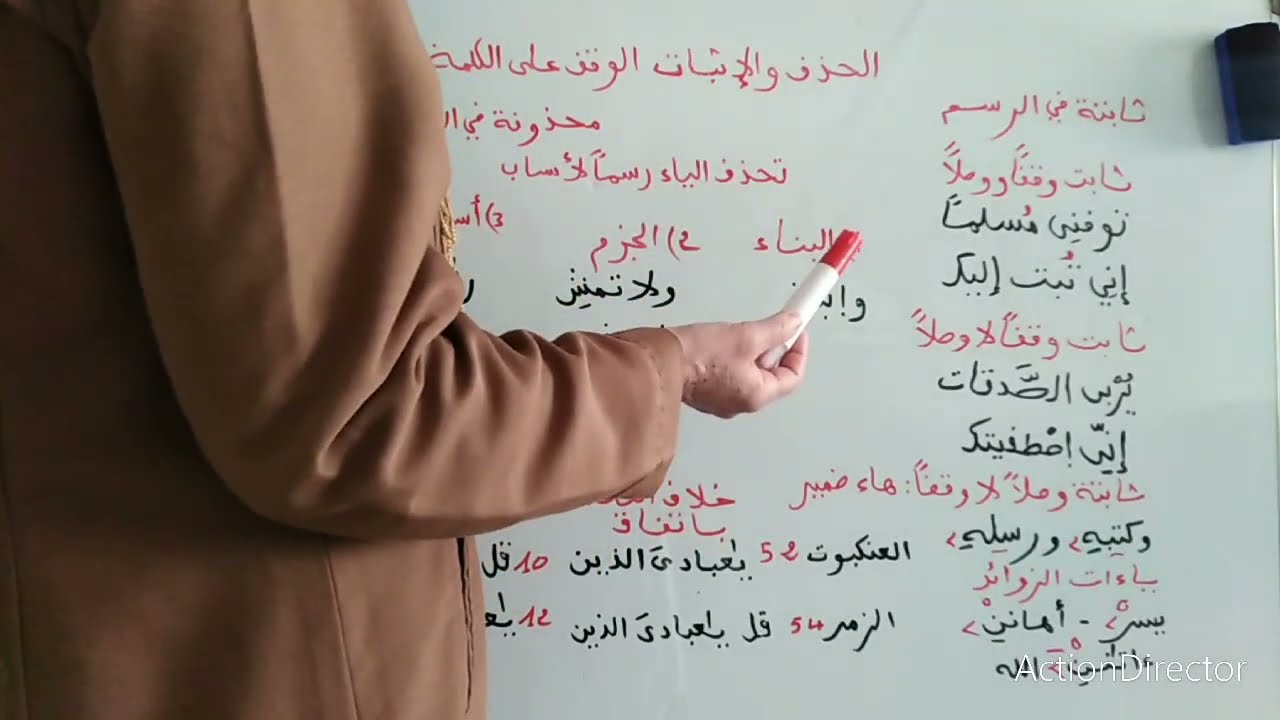 الحذف والإثبات الوقف على الكلمة
ثابتة في الرسم
ثابت وقفاً ووصلاً
توفني مُسلماً
إني تُبت إليك
ثابت وقفاً لا وصلاً
يُرْبِي الصَّدقات
إنّي اصْطفيتك
ثابتة وصلاً لا وقفاً: هاء ضمير
وكتبِهِ ورسلِهِ
ياءات الزوائد
يسرْ - أهاننْ
الله
محذوفة في
تحذف الياء رسماً لأسباب
البناء
2) الجزم
3)
ولا تمشِ
خلاف
باتفاق
العنكبوت 52 يٰعبادىَ الذين
10 قل
الزمر 54 قل يٰعبادىَ الذين
12
ActionDirector